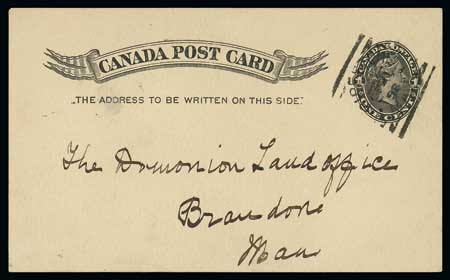 CANADA POST CARD
„THE ADDRESS TO BE WRITTEN ON THIS SIDE."
The Dominion Land office
Brandone
Man